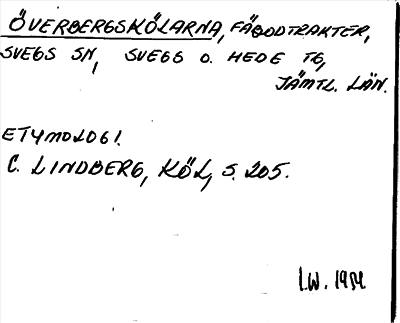 ÖVERBERGSKÖLARNA, FÄBODTRAKTER,
SVEGS SN, SVEGS O. HEDE TG,
JÄMTL. LÄN.
ETYMOLOGI.
C. LINDBERG, KÖL, S. 205.
I.W. 1954